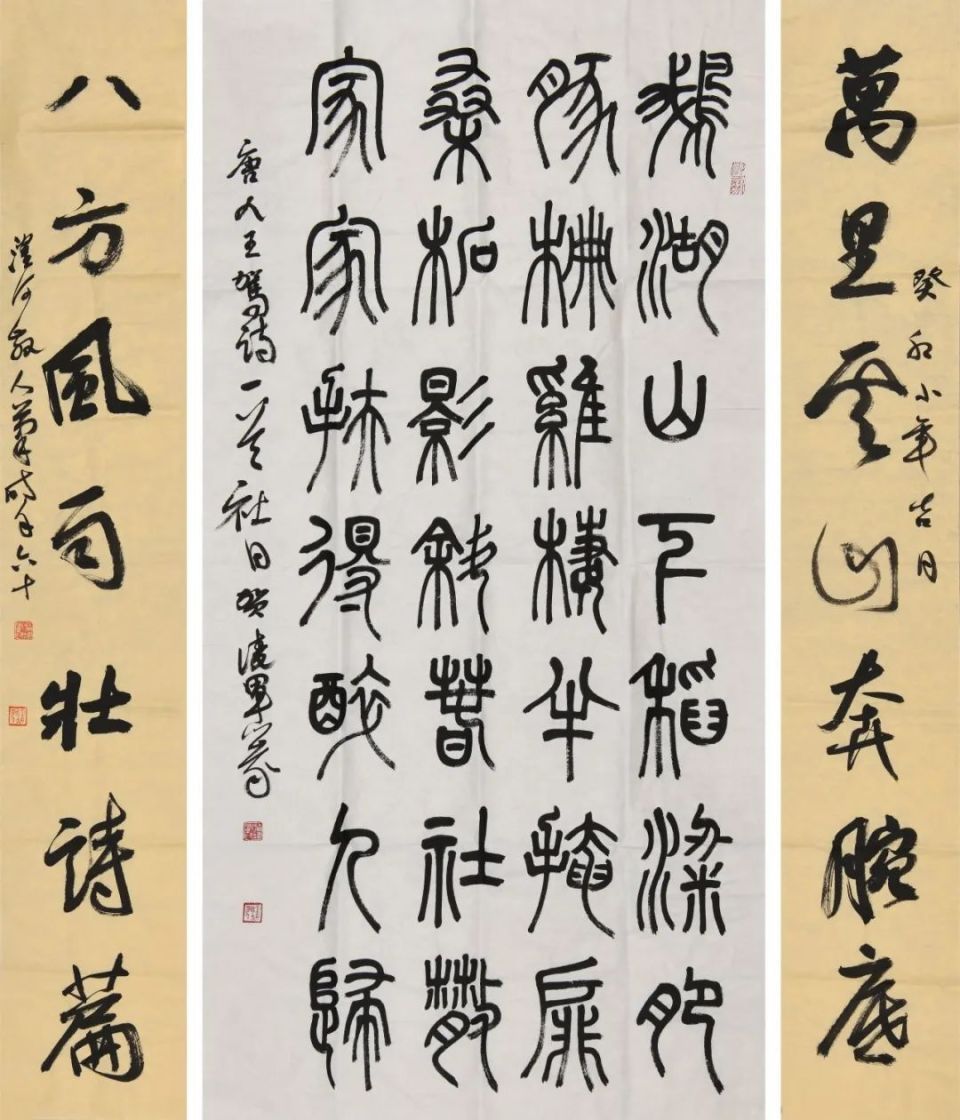 萬里云山奔腕底
癸卯小年吉日
鵝湖山下稻粱肥
豚柵雞棲半掩扉
桑柘影斜春社散
家家扶得醉人歸
唐人王駕詩一首社日
八方風雨壮詩篇
散人軍時年六十